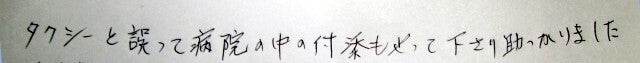 タクシーと誤って病院の中の付添もやって下さり助っかりました